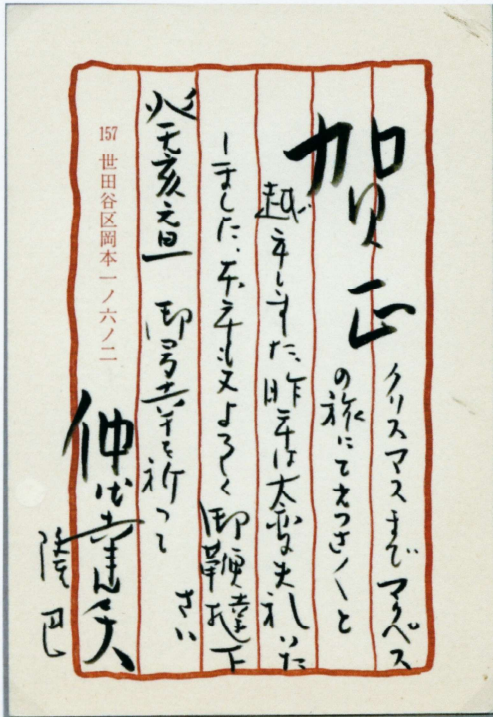 賀正
クリスマスまで マクベス
の旅にてえっさ〳〵と
越年しました、昨年は大変失礼いた
しました、本年も又よろしく御鞭撻下
さい
御多幸を祈って
癸亥元旦
157 世田谷区岡本一ノ六ノ二
仲代達矢
隆巴